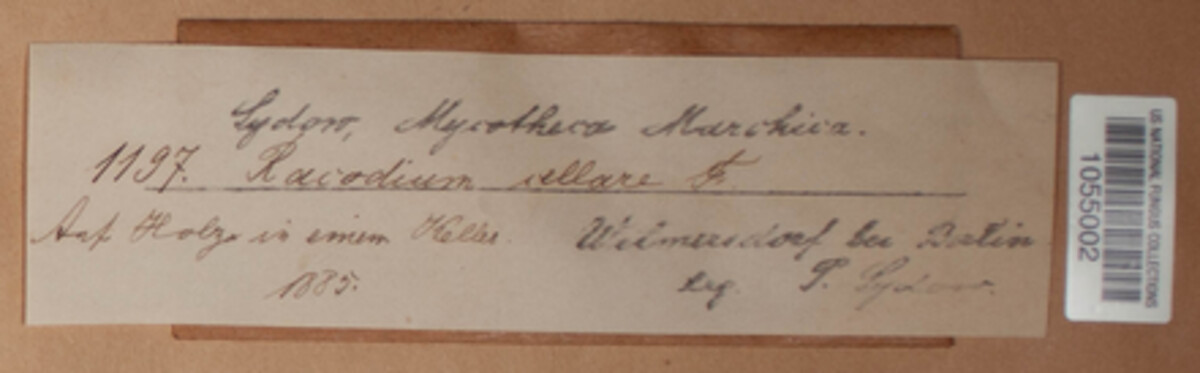 Sydow, Mycotheca Marchica.
1197. Racodium cellare F.
Auf Holz in einem Keller. Wilmersdorf bei Berlin
1885. leg. P. Sydow.
US NATIONAL FUNGUS COLLECTIONS
1055002